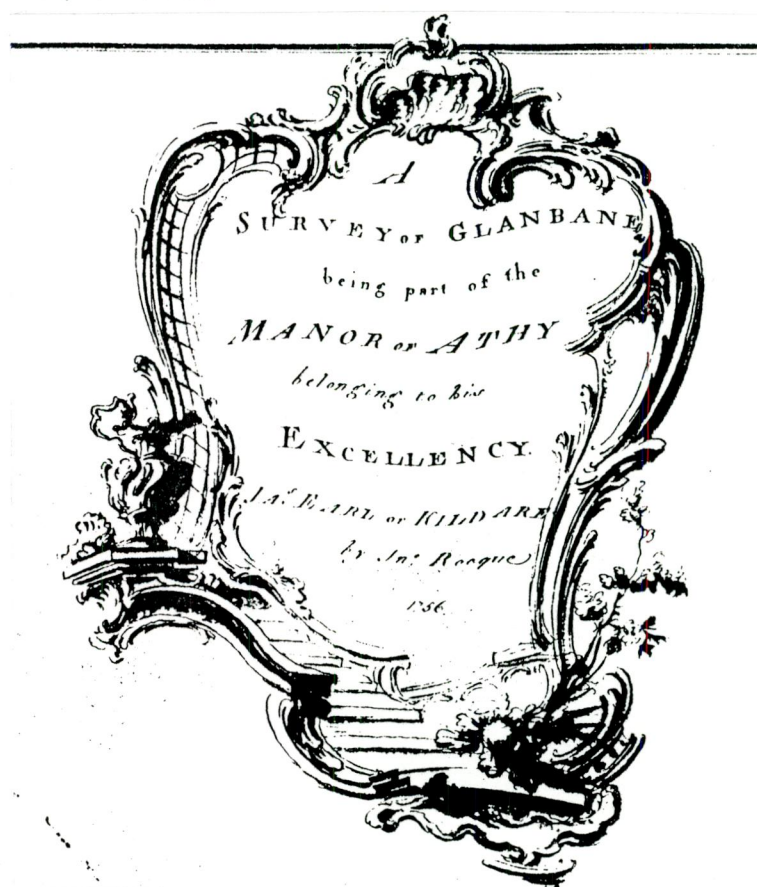 A
SURVEY OF GLANBANE
being part of the
MANOR OF ATHY
belonging to his
EXCELLENCY.
Jas. EARL OF KILDARE
by Jno. Rocque
1756